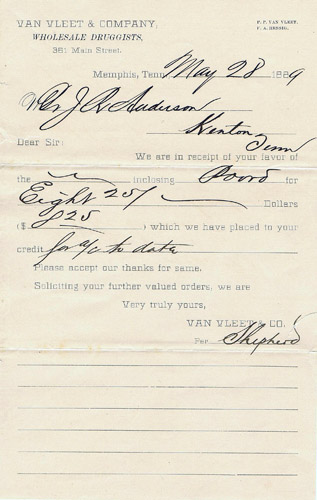 VAN VLEET & COMPANY,
P. P. VAN VLEET.
WHOLESALE DRUGGISTS,
381 Main Street.
Memphis, Tenn May 28 1889
J R Anderson
Kenton
Tenn
Dear Sir:
We are in receipt of your favor of
the including for
Eight 25/ Dollars
($ 825 ) which we have placed to your
credit for a/c to date
Please accept our thanks for same.
Soliciting your further valued orders, we are
Very truly yours,
VAN VLEET & CO.
Per Shepherd